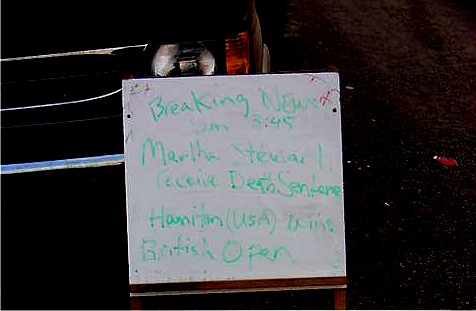 Breaking News
Sun 3:45
Martha Stewart
receive Death Sentence
Hamilton (USA) wins
British Open